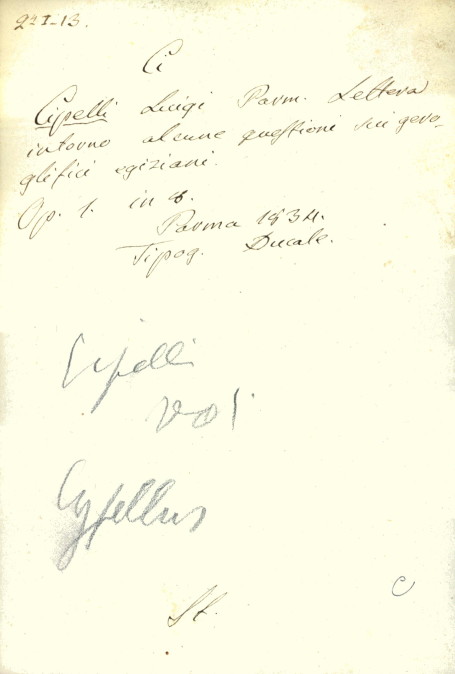 221-13.
Ci
Cipelli Luigi Parm. Lettera
intorno alcune questioni sui gero-
glifici egiziani.
Op. 1. in 8.
Parma 1834.
Tipog. Ducale.
Cipelli
Cypellus
St.
C